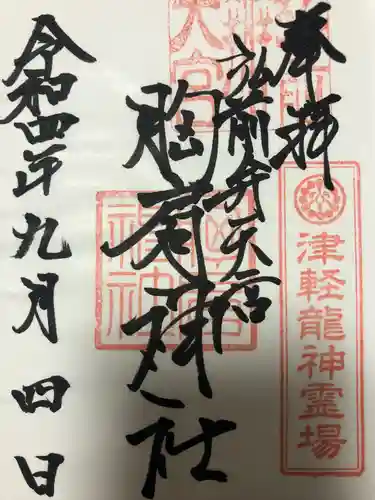 奉拝
弘前弁天宮
胸肩神社
令和四年九月四日
津軽龍神霊場